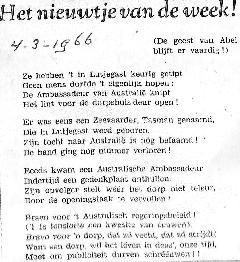 Het nieuwtje van de week!
4-3-1966
(De geest van Abel
blijft er vaardig!)
Ze hebben 't in Lutjegast keurig getipt
Geen mens dorfde 't eigenlijk hopen!
De Ambassadeur van Australië knipt
Het lint voor de dorpshuisdeur open!
Er was eens een Zeevaarder, Tasman genaamd,
Die in Lutjegast werd geboren.
Zijn tocht naar Australië is nog befaamd!
De band ging nog nummer verloren!
Reeds kwam een Australische Ambassadeur
Indertijd een gedenkplaat onthullen.
Zijn opvolger stelt wéér het dorp niet teleur,
Door de openingstaak te vervullen!
Bravo voor 't Australisch regeringsbeleid!
('t Is tenslotte een kwestie van zuwen).
Bravo voor 'n dorp, dat zó vecht, dat zó strijdt!
Want een dorp, wil het léven in deze, onze tijd,
Moet om publiciteit durven schrééuwen!!